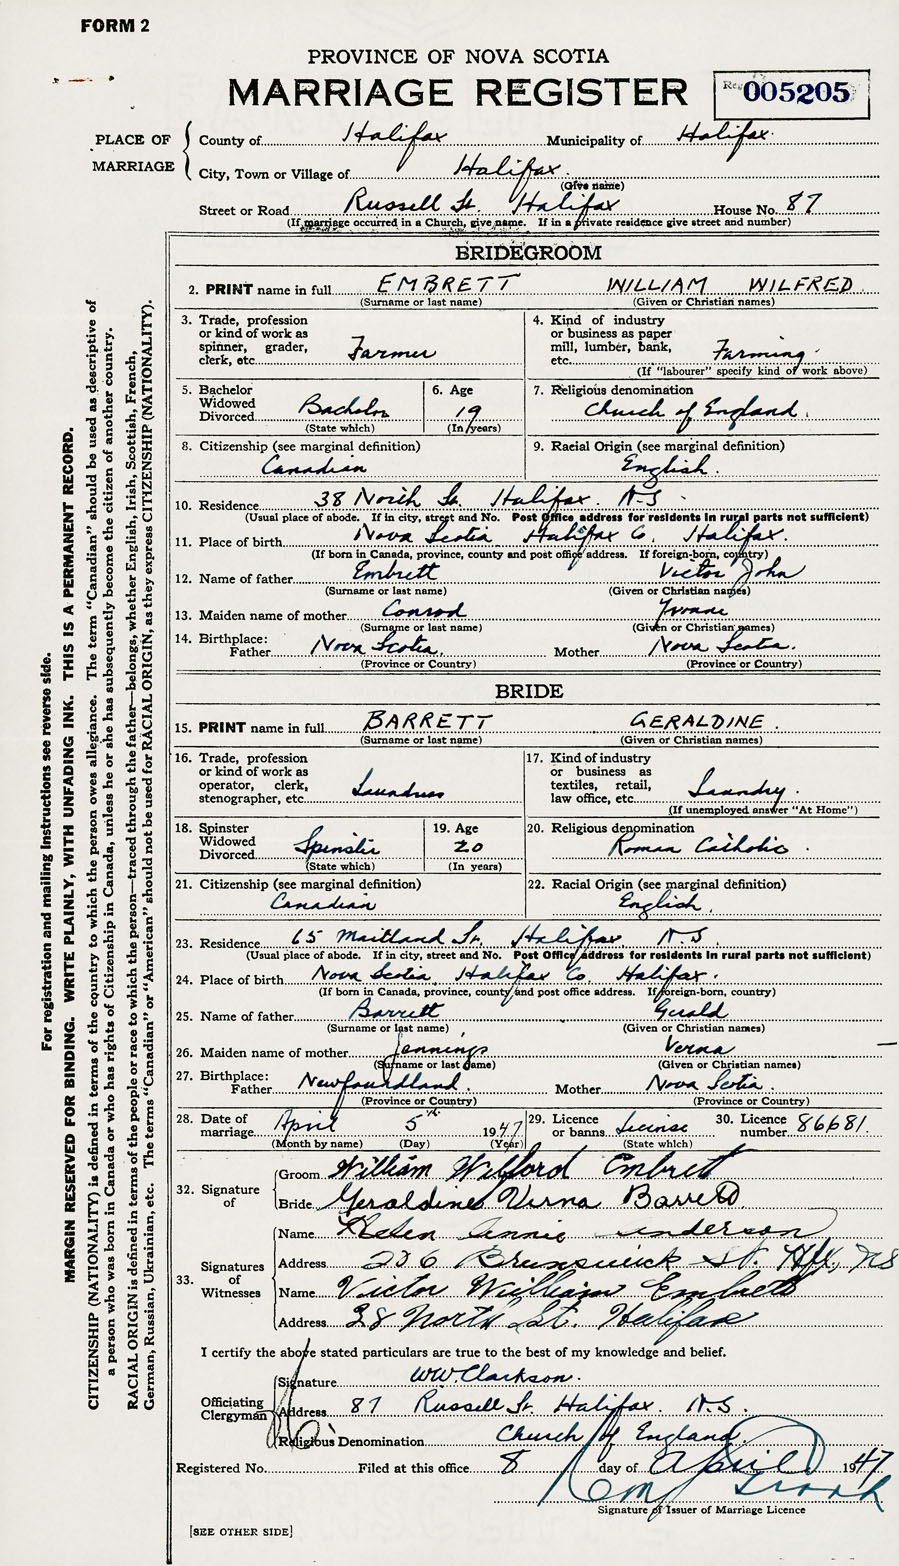 FORM 2
PROVINCE OF NOVA SCOTIA
MARRIAGE REGISTER
005205
PLACE OF MARRIAGE
County of Halifax Municipality of Halifax
City, Town or Village of Halifax
(Give name)
Street or Road Russell St. Halifax House No. 87
(If marriage occurred in a Church, give name. If in a private residence give street and number)
BRIDEGROOM
2. PRINT name in full EMBRETT WILLIAM WILFRED
(Surname or last name) (Given or Christian names)
3. Trade, profession or kind of work as spinner, grader, clerk, etc. Farmer
4. Kind of industry or business as paper mill, lumber, bank, etc. Farming
(If "labourer" specify kind of work above)
5. Bachelor Widowed Divorced Bachelor
(State which)
6. Age 19
(In years)
7. Religious denomination Church of England.
8. Citizenship (see marginal definition) Canadian
9. Racial Origin (see marginal definition) English.
10. Residence 38 North St. Halifax. N.S.
(Usual place of abode. If in city, street and No. Post Office address for residents in rural parts not sufficient)
11. Place of birth Nova Scotia Halifax Co. Halifax.
(If born in Canada, province, county and post office address. If foreign-born, country)
12. Name of father Embrett Victor John
(Surname or last name) (Given or Christian names)
13. Maiden name of mother Conrod Yvonne
(Surname or last name) (Given or Christian names)
14. Birthplace:
Father Nova Scotia. Mother Nova Scotia.
(Province or Country) (Province or Country)
BRIDE
15. PRINT name in full BARRETT GERALDINE.
(Surname or last name) (Given or Christian names)
16. Trade, profession or kind of work as operator, clerk, stenographer, etc. Laundress
17. Kind of industry or business as textiles, retail, law office, etc. Laundry.
(If unemployed answer "At Home")
18. Spinster Widowed Divorced Spinster
(State which)
19. Age 20
(In years)
20. Religious denomination Roman Catholic.
21. Citizenship (see marginal definition) Canadian
22. Racial Origin (see marginal definition) English.
23. Residence 65 Maitland St. Halifax N.S.
(Usual place of abode. If in city, street and No. Post Office address for residents in rural parts not sufficient)
24. Place of birth Nova Scotia, Halifax Co. Halifax.
(If born in Canada, province, county and post office address. If foreign-born, country)
25. Name of father Barrett Gerald
(Surname or last name) (Given or Christian names)
26. Maiden name of mother Jennings Verna
(Surname or last name) (Given or Christian names)
27. Birthplace:
Father Newfoundland. Mother Nova Scotia.
(Province or Country) (Province or Country)
28. Date of marriage April 5th 1947
(Month by name) (Day) (Year)
29. Licence or banns License
(State which)
30. Licence number 86681.
32. Signature of
Groom William Wilford Embrett
Bride Geraldine Verna Barrett
33. Signatures of Witnesses
Name Helen Annie Anderson
Address 206 Brunswick St. Hfx, NS
Name Victor William Embrett
Address 38 North St. Halifax
I certify the above stated particulars are true to the best of my knowledge and belief.
Officiating Clergyman
Signature WW. Clarkson.
Address 87 Russell St. Halifax. N.S.
Religious Denomination Church of England.
Registered No. Filed at this office 8 day of April 1947
Signature of Issuer of Marriage Licence
[SEE OTHER SIDE]
For registration and mailing instructions see reverse side.
MARGIN RESERVED FOR BINDING. WRITE PLAINLY, WITH UNFADING INK. THIS IS A PERMANENT RECORD.
CITIZENSHIP (NATIONALITY) is defined in terms of the country to which the person owes allegiance. The term "Canadian" should be used as descriptive of
a person who was born in Canada or who has rights of Citizenship in Canada, unless he or she has subsequently become the citizen of another country.
RACIAL ORIGIN is defined in terms of the people or race to which the person—traced through the father—belongs, whether English, Irish, Scottish, French,
German, Russian, Ukrainian, etc. The terms "Canadian" or "American" should not be used for RACIAL ORIGIN, as they express CITIZENSHIP (NATIONALITY).